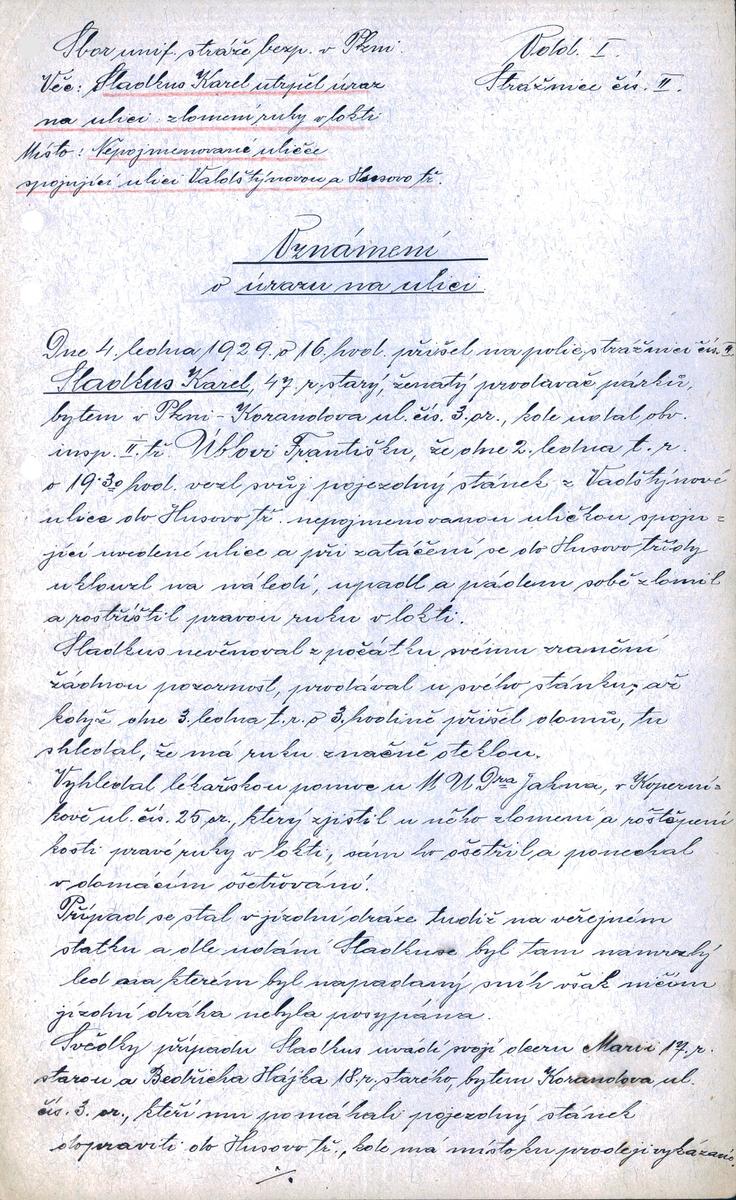 Sbor unif. stráže bezp. v Plzni.
Odd. I.
Věc: Sladkus Karel utrpěl úraz
Strážnice čís. II.
na ulici zlomení ruky v lokti
Místo: Nepojmenované uličce
spojující ulici Valdštýnovou a Husovo tř.
Oznámení
o úrazu na ulici
Dne 4. ledna 1929 o 16. hod. přišel na polic. strážnici čís. II.
Sladkus Karel, 47 r. starý, ženatý prodavač párků,
bytem v Plzni - Korandova ul. čís. 3. or., kde udal obv.
insp. II. tř. Üblovi Františku, že dne 2. ledna t. r.
o 19.30 hod. vezl svůj pojezdný stánek z Vadštýnové
ulice do Husovo tř. nepojmenovanou uličkou spoju-
jící uvedené ulice a při zatáčení se do Husovo třídy
uklouzl na náledí, upadl a pádem sobě zlomil
a rostříštil pravou ruku v lokti.
Sladkus nevěnoval z počátku svému zranění
žádnou pozornost, prodával u svého stánku, až
když dne 3. ledna t. r. o 3. hodině přišel domů, tu
shledal, že má ruku značně oteklou.
Vyhledal lékařskou pomoc u MUDra Jahna, v Koperní-
kově ul. čís. 25 or., který zjistil u něho zlomení a roštěpení
kosti pravé ruky v lokti, sám ho ošetřil a ponechal
v domácím ošetřování.
Případ se stal v jízdní dráze tudíž na veřejném
statku a dle udání Sladkuse byl tam namrzlý
led na kterém byl napadaný sníh však ničím
jízdní dráha nebyla posypána.
Svědky případu Sladkus uvádí svoji dceru Marii 17. r.
starou a Bedřicha Hájka 18. r. starého, bytem Korandova ul.
čís. 3. or., kteří mu pomáhali pojezdný stánek
dopraviti do Husovo tř., kde má místo ku prodeji vykázané.
./.